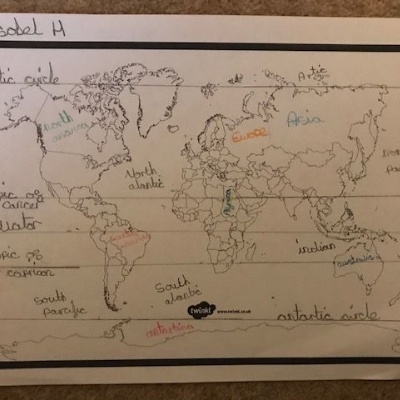 sobel H
tic circle
Artic
north
america
Asia
Europe
North
atlantic
pic of
cancer
Africa
uator
South
america
indian
pic of
capricorn
australia
South
pacific
South
atlantic
twinkl www.twinkl.co.uk
antartic circle
antartica